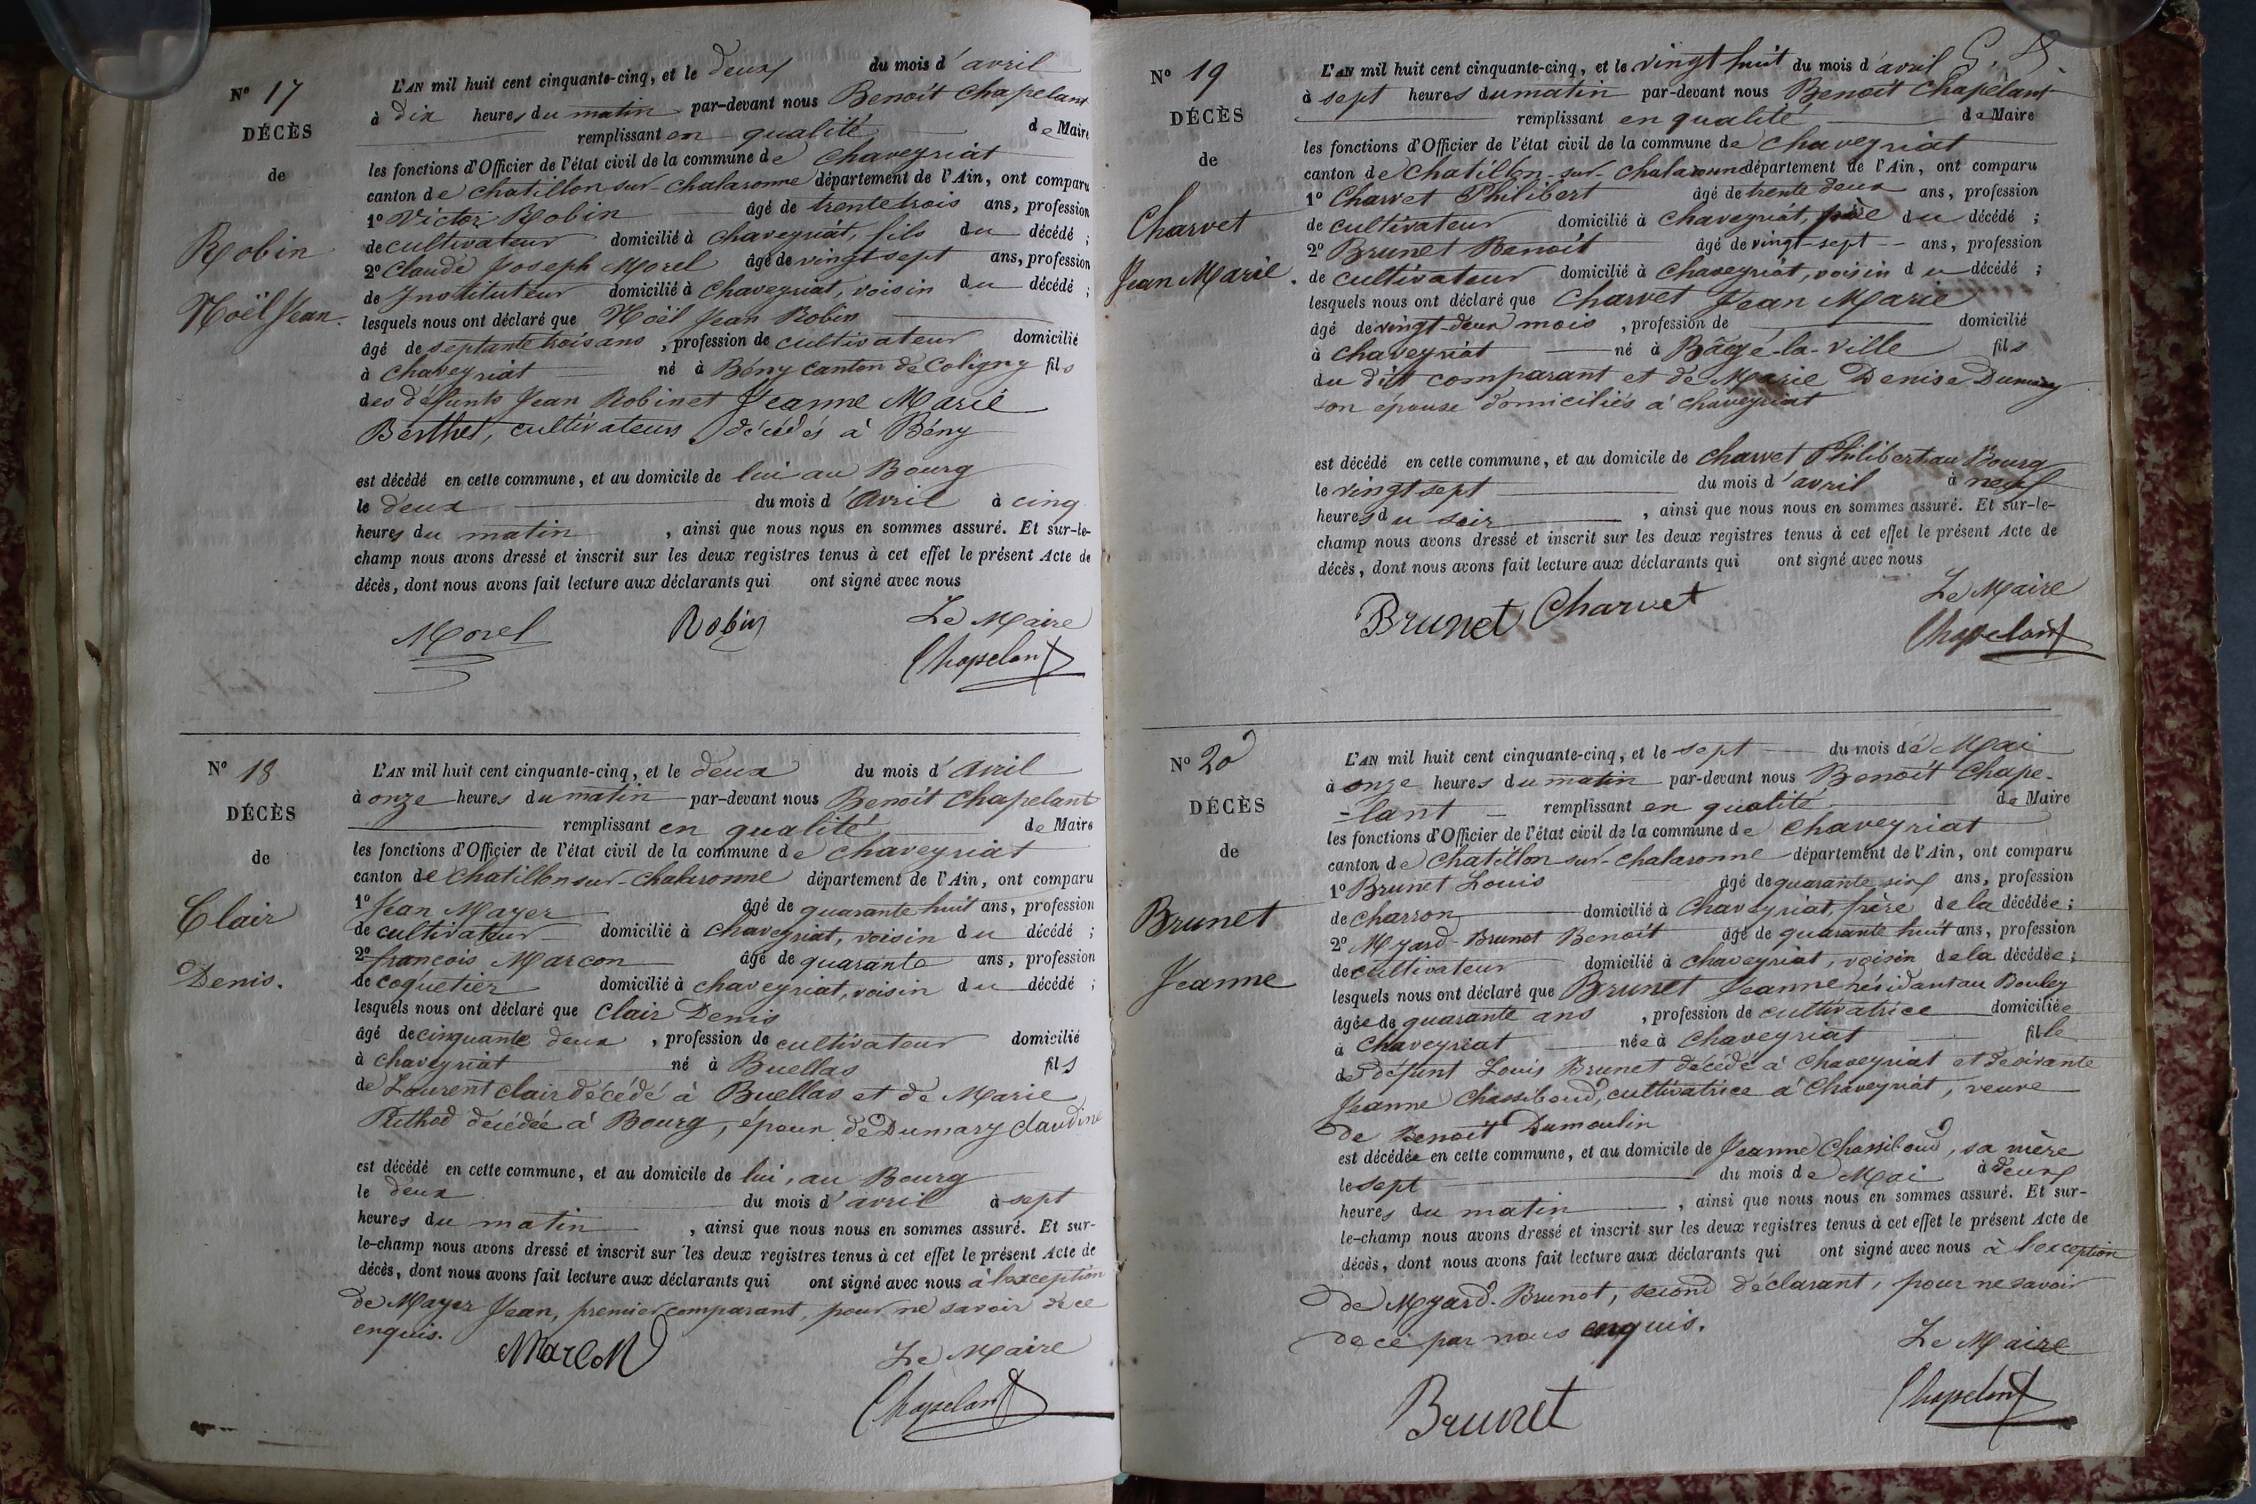 N° 17
DÉCÈS
de
Robin
Noël Jean.
L'AN mil huit cent cinquante-cinq, et le deux du mois d'avril
à dix heures du matin par-devant nous Benoit Chapelant
remplissant en qualité de Maire
les fonctions d'Officier de l'état civil de la commune de Chaveyriat
canton de Chatillon-sur-Chalaronne département de l'Ain, ont comparu
1° Victor Robin âgé de trente trois ans, profession
de cultivateur domicilié à Chaveyriat, fils du décédé ;
2° Claude Joseph Morel âgé de vingt sept ans, profession
de Instituteur domicilié à Chaveyriat, voisin du décédé ;
lesquels nous ont déclaré que Noël Jean Robin
âgé de septante trois ans, profession de cultivateur domicilié
à Chaveyriat né à Bény canton de Coligny fils
des défunts Jean Robin et Jeanne Marie
Berthet, cultivateurs décédés à Bény
est décédé en cette commune, et au domicile de lui au Bourg
le deux du mois d'Avril à cinq
heures du matin, ainsi que nous nous en sommes assuré. Et sur-le-
champ nous avons dressé et inscrit sur les deux registres tenus à cet effet le présent Acte de
décès, dont nous avons fait lecture aux déclarants qui ont signé avec nous
Morel Robin Le Maire
Chapelant
N° 18
DÉCÈS
de
Clair
Denis.
L'AN mil huit cent cinquante-cinq, et le deux du mois d'Avril
à onze heures du matin par-devant nous Benoit Chapelant
remplissant en qualité de Maire
les fonctions d'Officier de l'état civil de la commune de Chaveyriat
canton de Chatillon sur-Chalaronne département de l'Ain, ont comparu
1° Jean Mayer âgé de quarante huit ans, profession
de cultivateur domicilié à Chaveyriat, voisin du décédé ;
2° françois Marcon âgé de quarante ans, profession
de coquetier domicilié à Chaveyriat, voisin du décédé ;
lesquels nous ont déclaré que Clair Denis
âgé de cinquante deux, profession de cultivateur domicilié
à Chaveyriat né à Buellas fils
de Laurent Clair décédé à Buellas et de Marie
décédée à Bourg, époux de Dumary Claudine
est décédé en cette commune, et au domicile de lui, au Bourg
le deux du mois d'avril à sept
heures du matin, ainsi que nous nous en sommes assuré. Et sur-
le-champ nous avons dressé et inscrit sur les deux registres tenus à cet effet le présent Acte de
décès, dont nous avons fait lecture aux déclarants qui ont signé avec nous à l'exception
de Mayer Jean, premier comparant, pour ne savoir de ce
enquis.
Marcon Le Maire
Chapelant
N° 19
DÉCÈS
de
Charvet
Jean Marie.
L'AN mil huit cent cinquante-cinq, et le vingt huit du mois d'avril
à sept heures du matin par-devant nous Benoit Chapelant
remplissant en qualité de Maire
les fonctions d'Officier de l'état civil de la commune de Chaveyriat
canton de Chatillon-sur-Chalaronne département de l'Ain, ont comparu
1° Charvet Philibert âgé de trente deux ans, profession
de cultivateur domicilié à Chaveyriat, père du décédé ;
2° Brunet Benoit âgé de vingt-sept ans, profession
de cultivateur domicilié à Chaveyriat, voisin du décédé ;
lesquels nous ont déclaré que Charvet Jean Marie
âgé de vingt-deux mois, profession de domicilié
à Chaveyriat né à Bâgé-la-Ville fils
du dit comparant et de Marie Denise Dumary
son épouse domiciliés à Chaveyriat
est décédé en cette commune, et au domicile de Charvet Philibert au Bourg
le vingt sept du mois d'avril à neuf
heures du soir, ainsi que nous nous en sommes assuré. Et sur-le-
champ nous avons dressé et inscrit sur les deux registres tenus à cet effet le présent Acte de
décès, dont nous avons fait lecture aux déclarants qui ont signé avec nous
Brunet Charvet Le Maire
Chapelant
N° 20
DÉCÈS
de
Brunet
Jeanne
L'AN mil huit cent cinquante-cinq, et le sept du mois de Mai
à onze heures du matin par-devant nous Benoit Chape-
-lant remplissant en qualité de Maire
les fonctions d'Officier de l'état civil de la commune de Chaveyriat
canton de Chatillon sur-Chalaronne département de l'Ain, ont comparu
1° Brunet Louis âgé de quarante six ans, profession
de charron domicilié à Chaveyriat, frère de la décédée ;
2° Myard-Brunot Benoit âgé de quarante huit ans, profession
de cultivateur domicilié à Chaveyriat, voisin de la décédée ;
lesquels nous ont déclaré que Brunet Jeanne résidant au
âgée de quarante ans, profession de cultivatrice domiciliée
à Chaveyriat née à Chaveyriat fille
de défunt Louis Brunet décédé à Chaveyriat et de vivante
Jeanne Chassiboud, cultivatrice à Chaveyriat, veuve
de Benoit Dumoulin
est décédée en cette commune, et au domicile de Jeanne Chassiboud, sa mère
le sept du mois de Mai à deux
heures du matin, ainsi que nous nous en sommes assuré. Et sur-
le-champ nous avons dressé et inscrit sur les deux registres tenus à cet effet le présent Acte de
décès, dont nous avons fait lecture aux déclarants qui ont signé avec nous à l'exception
de Myard-Brunot, second déclarant, pour ne savoir
de ce par nous enquis.
Le Maire
Brunet Chapelant